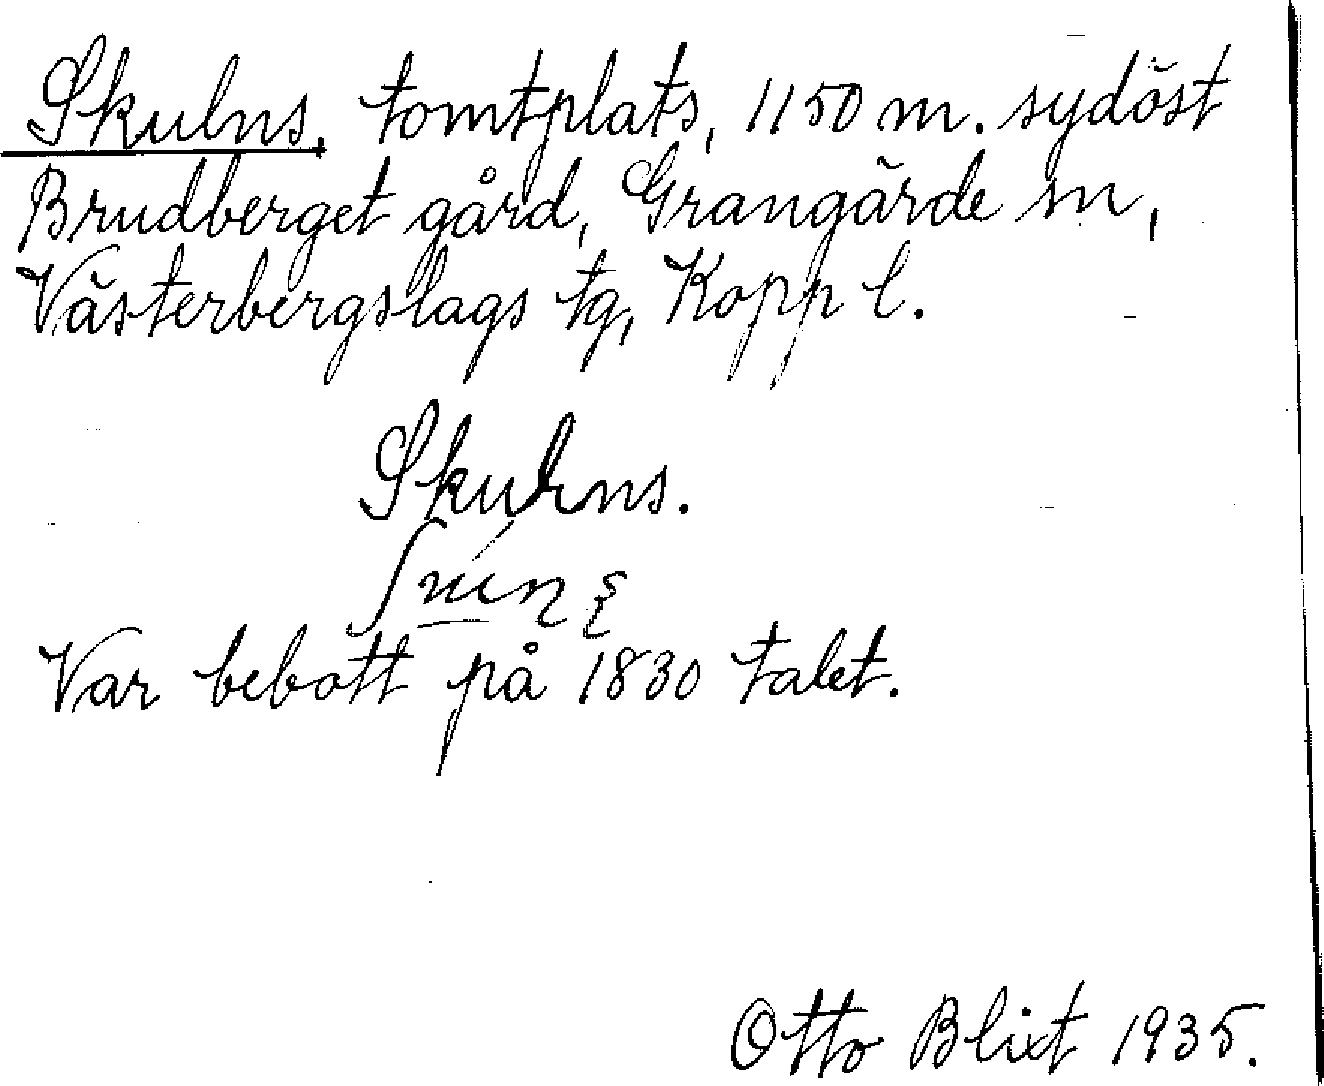 Skulns. tomtplats, 1150 m. sydöst
Brudberget gård, Grangärde sn,
Västerbergslags tg, Kopp l.
Skulns.
Var bebott på 1830 talet.
Otto Blixt 1935.